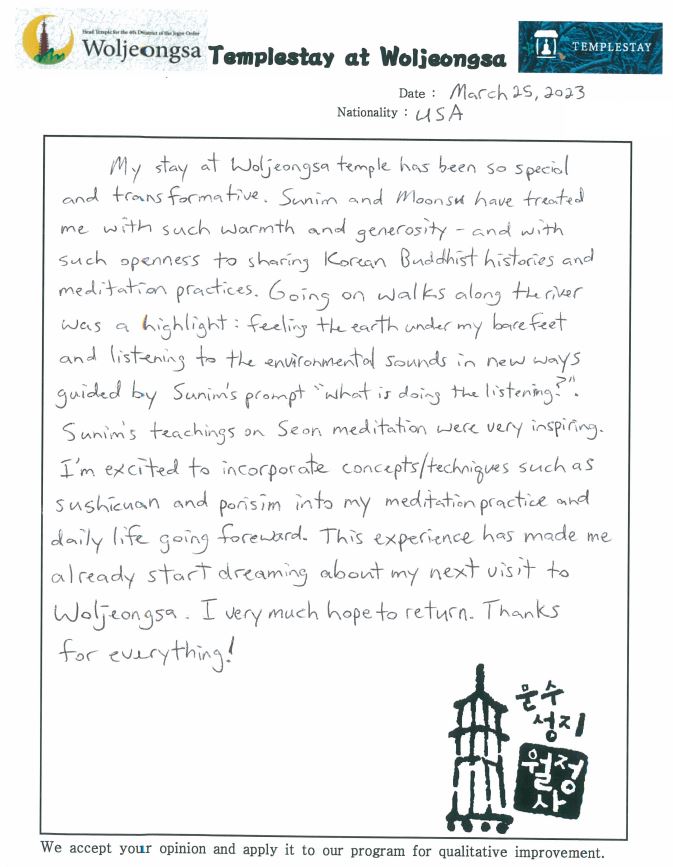 Head Temple for the 4th District of the Jogye Order
Woljeongsa
Templestay at Woljeongsa
TEMPLESTAY
Date : March 25, 2023
Nationality : USA
My stay at Woljeongsa temple has been so special
and transformative. Sunim and Moonsu have treated
me with such warmth and generosity - and with
such openness to sharing Korean Buddhist histories and
meditation practices. Going on walks along the river
was a highlight: feeling the earth under my bare feet
and listening to the environmental sounds in new ways
guided by Sunim's prompt "what is doing the listening?".
Sunim's teachings on Seon meditation were very inspiring.
I'm excited to incorporate concepts/techniques such as
sushicuan and porisim into my meditation practice and
daily life going foreward. This experience has made me
already start dreaming about my next visit to
Woljeongsa. I very much hope to return. Thanks
for everything!
문수
성지
월정
사
We accept your opinion and apply it to our program for qualitative improvement.